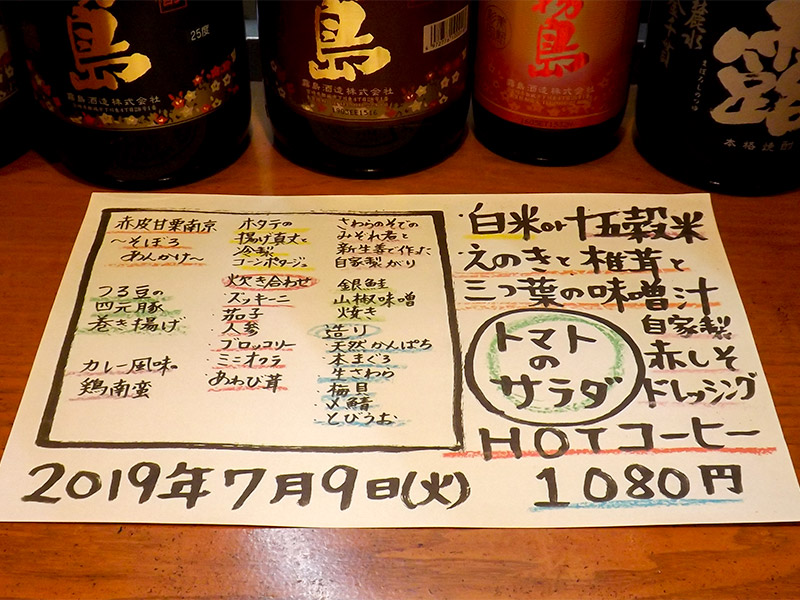 島
25度
霧島酒造株式会社
島
霧島酒造株式会社
霧島
霧島酒造株式会社
露
本格焼酎
赤皮甘栗南京
〜そぼろ
あんかけ〜
つる豆の
四元豚
巻き揚げ
カレー風味
鶏南蛮
ホタテの
揚げ真丈と
冷製
コーンポタージュ
炊き合わせ
ズッキーニ
茄子
人参
ブロッコリー
ミニオクラ
あわび茸
さわらのそでの
みぞれ煮と
新生姜で作った
自家製がり
銀鮭
山椒味噌
焼き
造り
天然かんぱち
本まぐろ
生さわら
梅貝
〆鯖
とびうお
白米or十五穀米
えのきと椎茸と
三つ葉の味噌汁
トマト
の
サラダ
自家製
赤しそ
ドレッシング
HOTコーヒー
2019年7月9日(火)
1080円